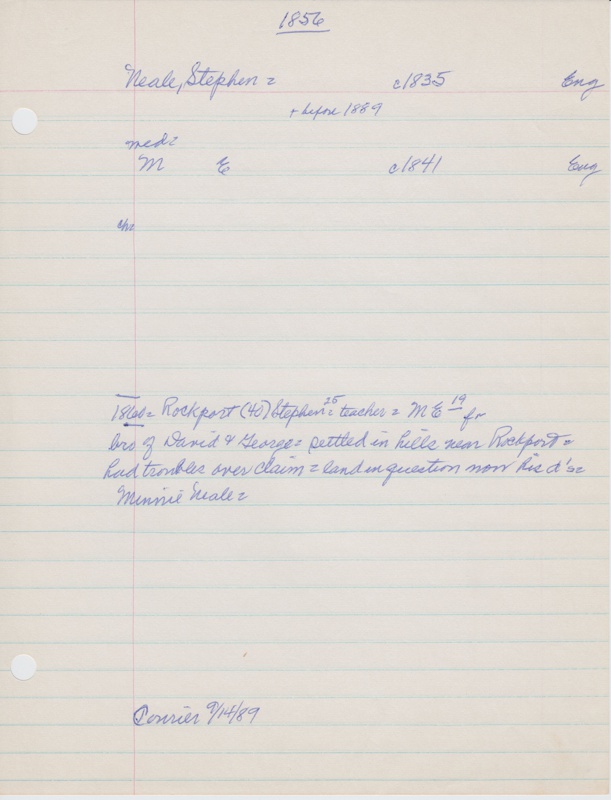 1856
Neale, Stephen = c1835 Eng
+ before 1889
med =
M E c1841 Eng
ch=
1860 = Rockport (40) Stephen 25 = teacher = M E 19
bro of David & George = settled in hills near Rockport =
had troubles over claim = land in question now his d's =
Minnie Neale =
Courier 9/14/89